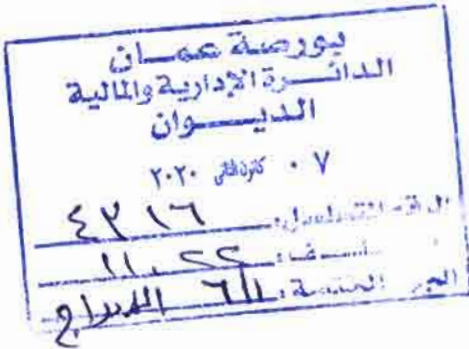 بورصة عمان
الدائرة الإدارية والمالية
الديوان
٠٧ كانون الثاني ٢٠٢٠
الرقم المتسلسل:
١١٠٢٢
الجهة المختصة: الإدراج